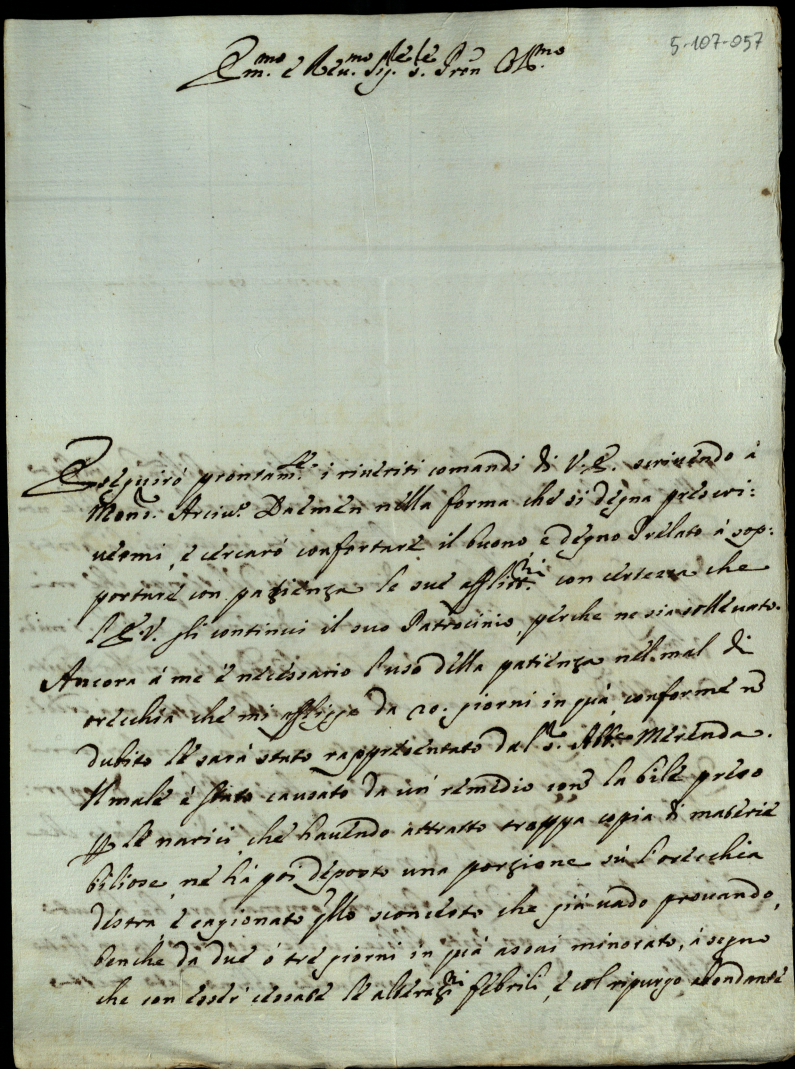 5-107-057
Em.mo e Reu.mo Sig.re s. Pron Col.mo
Eseguiró prontam.te i riueriti comandi di V.E. scriuendo á
Mons.r Arciu.o Daemen nella forma che si degna prescri:
uermi, e cercaró confortare il buono e degno Prelato á sop:
portare con pazienza le sue afflitt.ni con certezza che
l'E.V. gli continui il suo Patrocinio, perche ne sia solleuato.
Ancora á me é necessario l'uso della patienza nel mal di
orecchia che mi affligge da 20. giorni in quá conforme nō
dubito le sará stato rappresentato dal S.r Abb.e Merenda.
Il male é stato causato da un' remedio con.o la bile preso
p le narici che hauendo attratto troppa copia di materie
biliose, ne há poi deposto una porzione sú l'orecchia
destra, e cagionato q̃llo sconcerto che giá uado prouando,
benche da due ó tre giorni in quá assai minorato, á segno
che con esser cessate le alteraz.ni febrili, e col ripurgo abondante